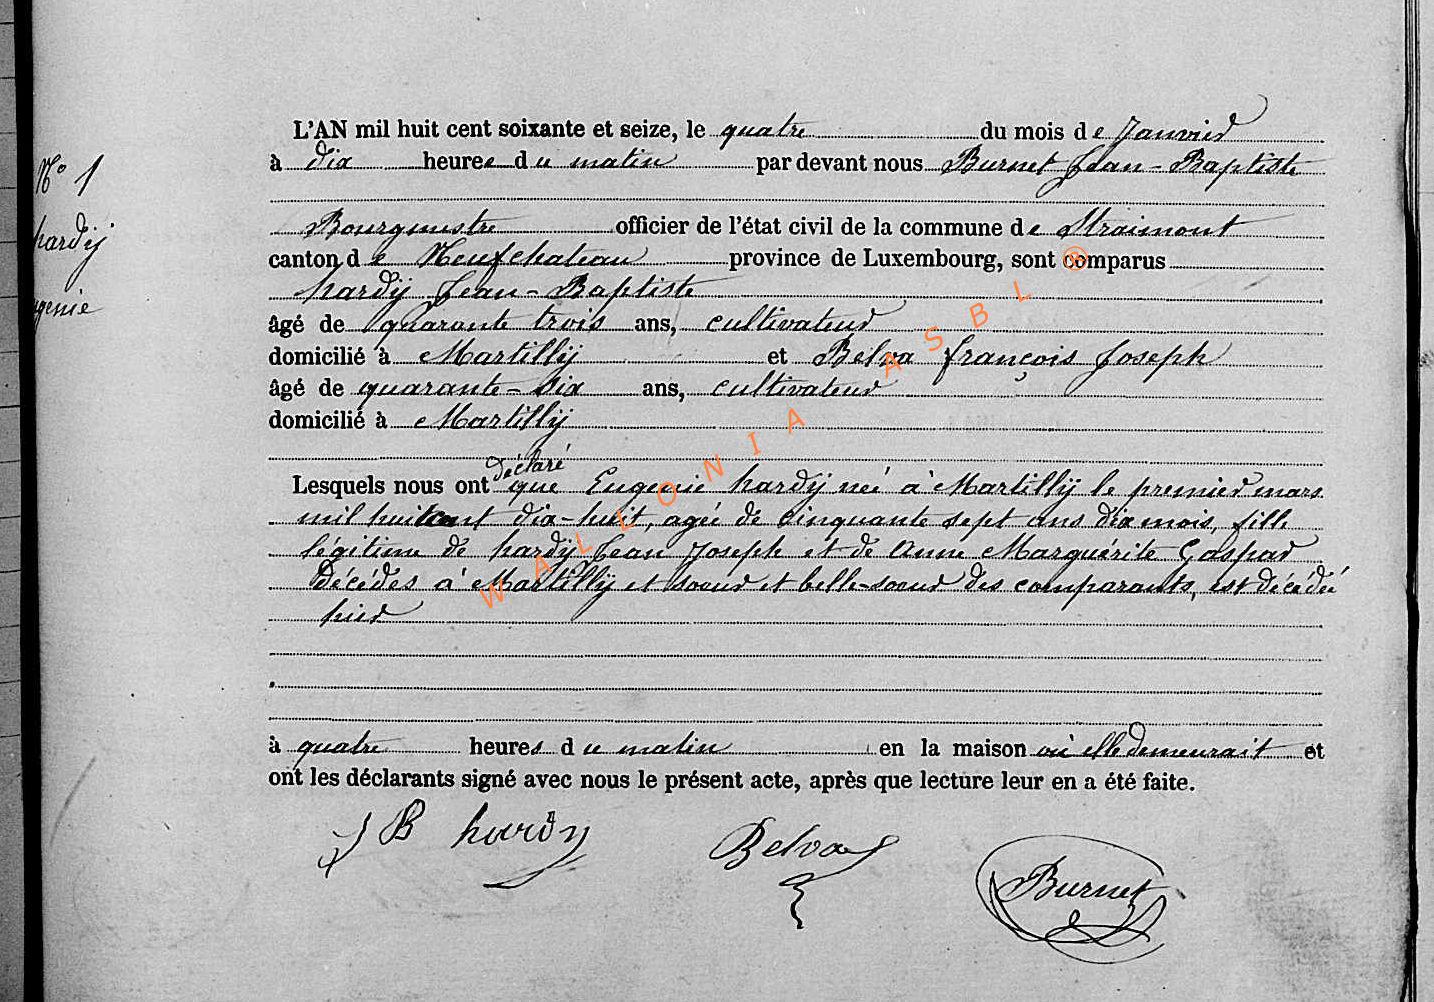 L'AN mil huit cent soixante et seize, le quatre du mois de Janvier
à dix heures du matin par devant nous Burnet Jean-Baptiste
N° 1
Bourgmestre officier de l'état civil de la commune de Straimont
hardÿ
canton de Neufchateau province de Luxembourg, sont comparus
hardÿ Jean-Baptiste
genie
âgé de quarante trois ans, cultivateur
domicilié à Martillÿ et Belva françois Joseph
âgé de quarante-six ans, cultivateur
domicilié à Martillÿ
déclaré
Lesquels nous ont que Eugenie hardÿ née à Martillÿ le premier mars
mil huit cent dix-huit, agée de cinquante sept ans dix mois, fille
légitime de hardÿ Jean Joseph et de Anne Marguérite Gaspar
décédés à Martillÿ et soeur et belle-soeur des comparants, est décédée
hier
à quatre heures du matin en la maison où elle demeurait et
ont les déclarants signé avec nous le présent acte, après que lecture leur en a été faite.
J B hardy Belva Burnet
WALLONIA ASBL ®